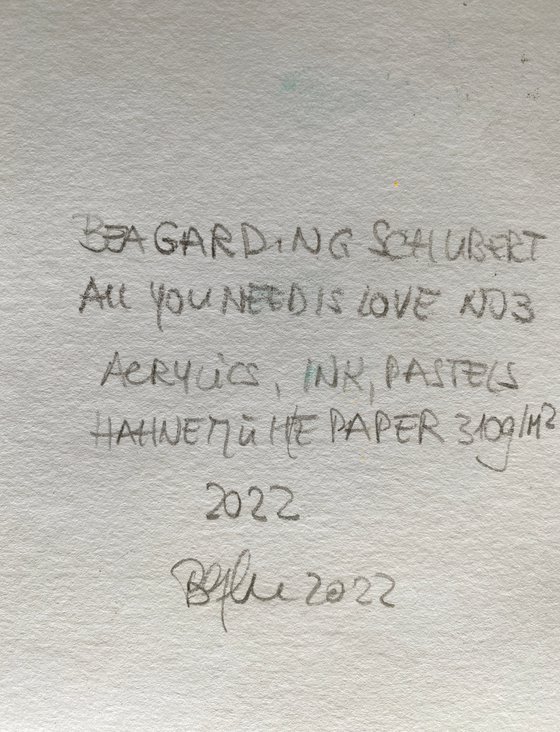 BEA GARDING SCHUBERT
All YOU NEED IS LOVE NO3
ACRYLICS, INK, PASTELS
HAHNEMÜHLE PAPER 310g/M²
2022
2022